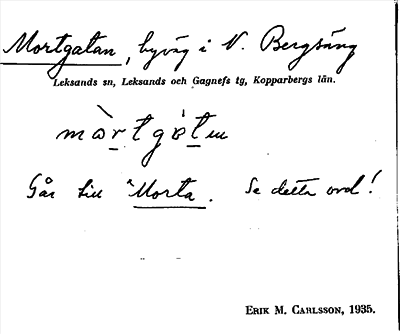 Mortgatan, byväg i N. Bergsäng
Leksands sn, Leksands och Gagnefs tg, Kopparbergs län.
mòrtgàtɯ
Går till Morta. Se detta ord!
ERIK M. CARLSSON, 1935.